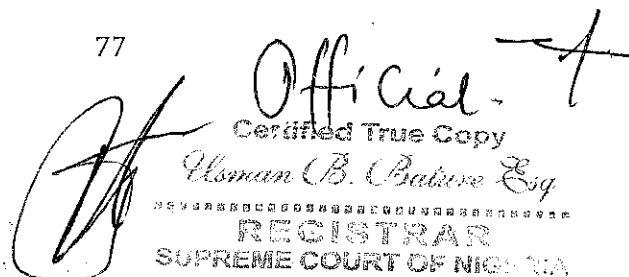 77
Official.
Certified True Copy
Usman B. Bature Esq
REGISTRAR
SUPREME COURT OF NIGERIA